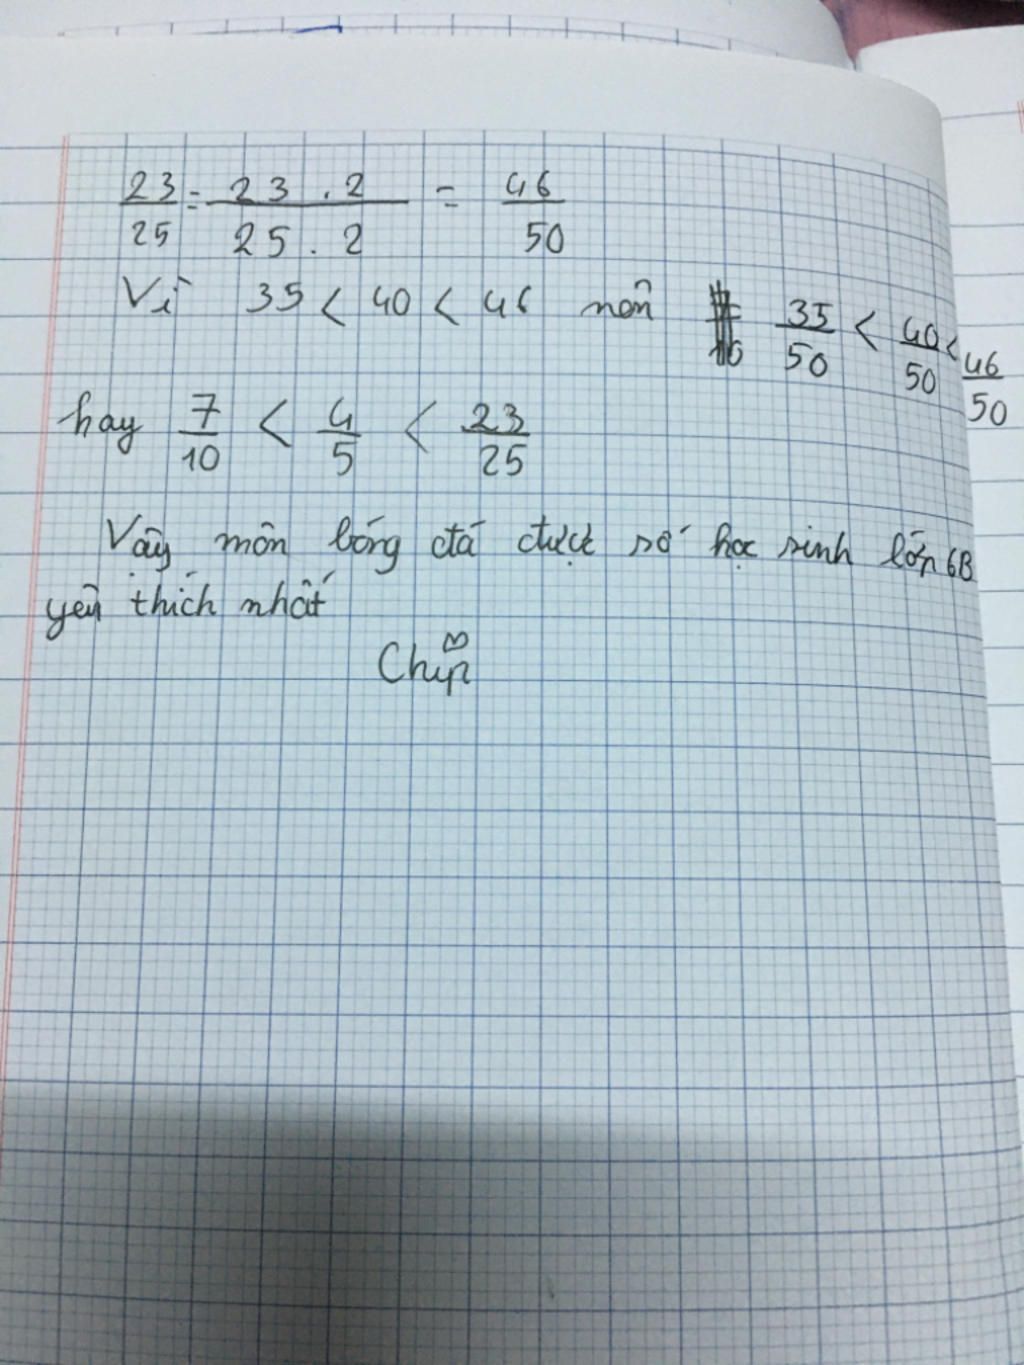 23/25 = 23 . 2 / 25 . 2 = 46/50
Vì 35 < 40 < 46 nên 35/50 < 40/50 < 46/50
hay 7/10 < 4/5 < 23/25
Vậy môn bóng đá được số học sinh lớp 6B
yêu thích nhất